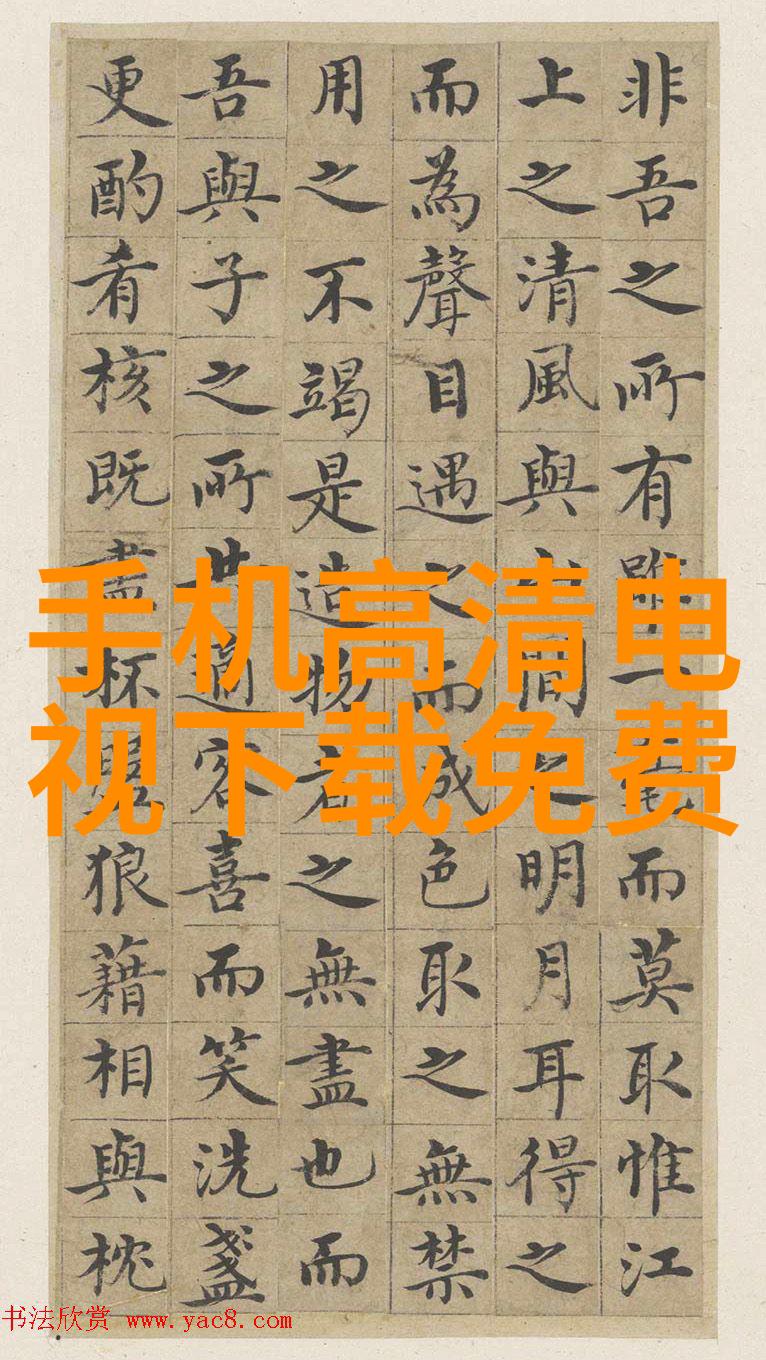 非吾之所有雖一毫而莫取惟江
上之清風與山間之明月耳得之
而為聲目遇之而成色取之無禁
用之不竭是造物者之無盡也而
吾與子之所共適客喜而笑洗盞
更酌肴核既盡杯盤狼藉相與枕
手机高清电
视下载免费
书法欣赏 www.yac8.com